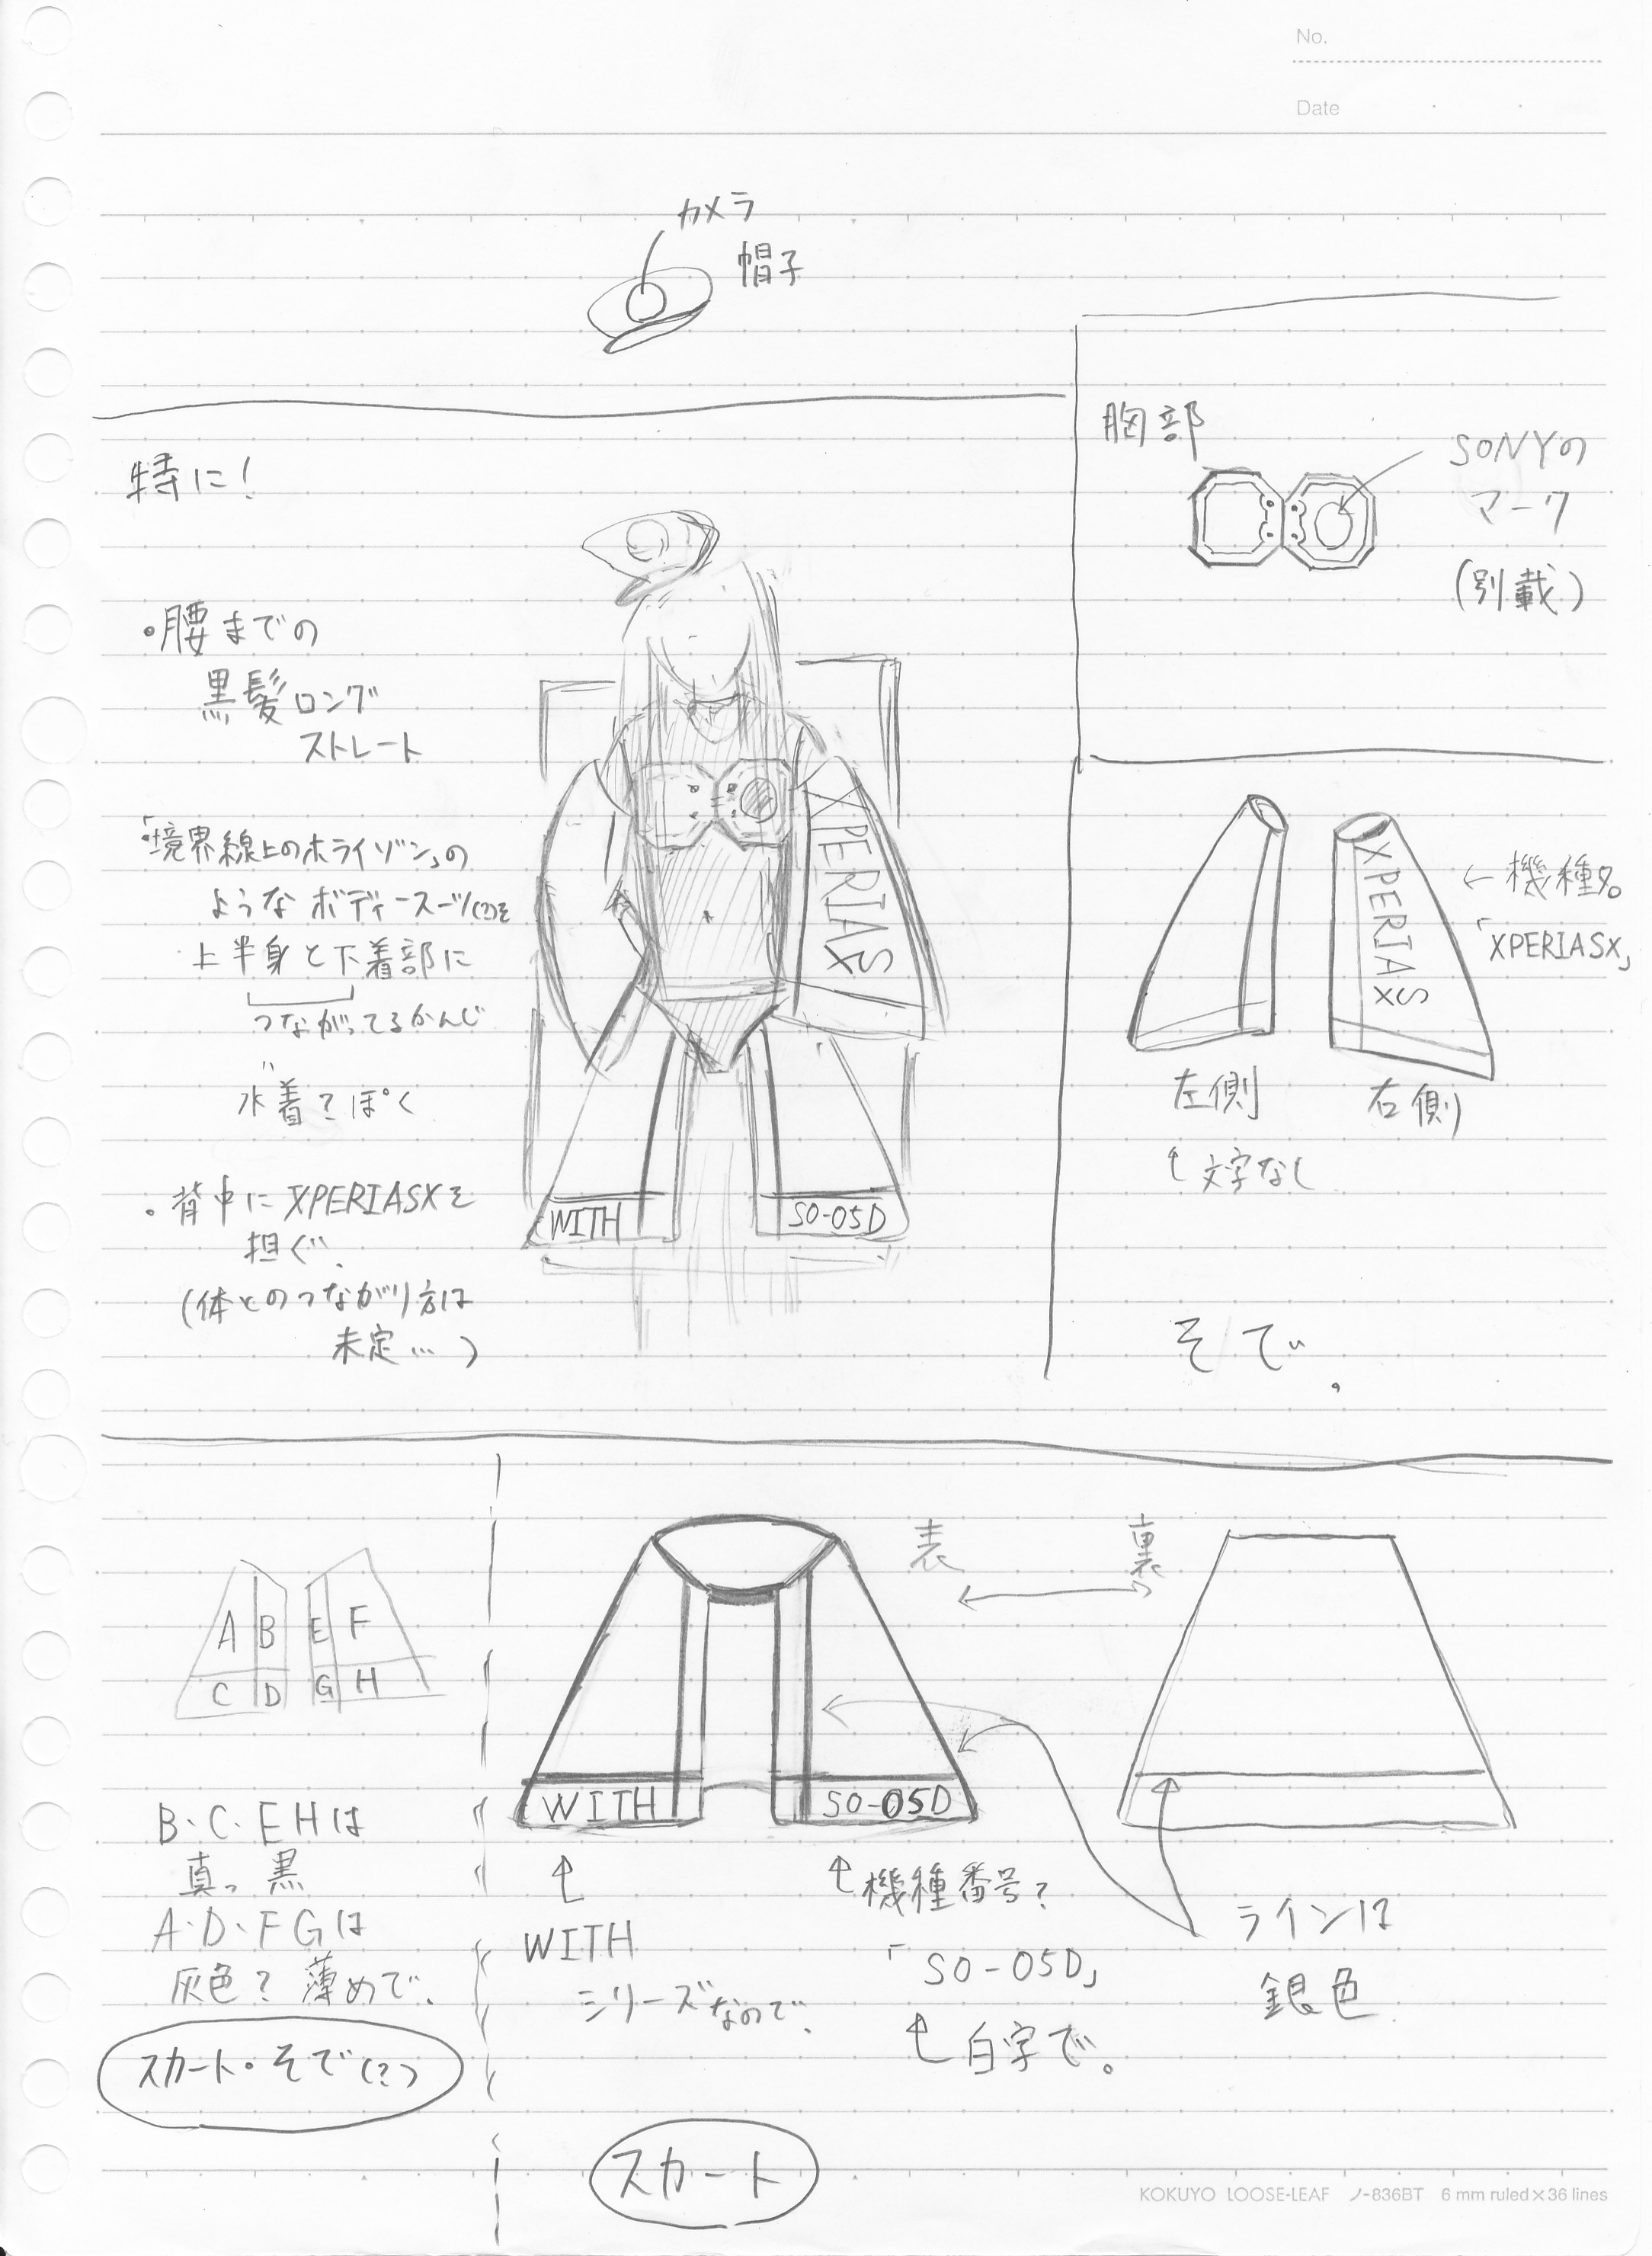 No.
Date
カメラ
帽子
特に!
・腰までの
黒髪ロング
ストレート
・「境界線上のホライゾン」の
ようなボディースーツ(?)を
上半身と下着部に
つながってるかんじ
水着?ぽく
・背中にXPERIASXを
担ぐ。
(体とのつながり方は
未定…)
XPERIASX
WITH
SO-05D
胸部
SONYの
マーク
(別載)
XPERIASX
←機種名
「XPERIASX」
左側
右側
文字なし
そで。
A B E F
C D G H
B・C・EHは
真っ黒
A・D・FGは
灰色?薄めで。
スカート・そで(?)
表
裏
WITH
SO-05D
WITH
シリーズなので。
機種番号?
「SO-05D」
白字で。
ラインは
銀色
スカート
KOKUYO LOOSE-LEAF ノ-836BT 6 mm ruled×36 lines